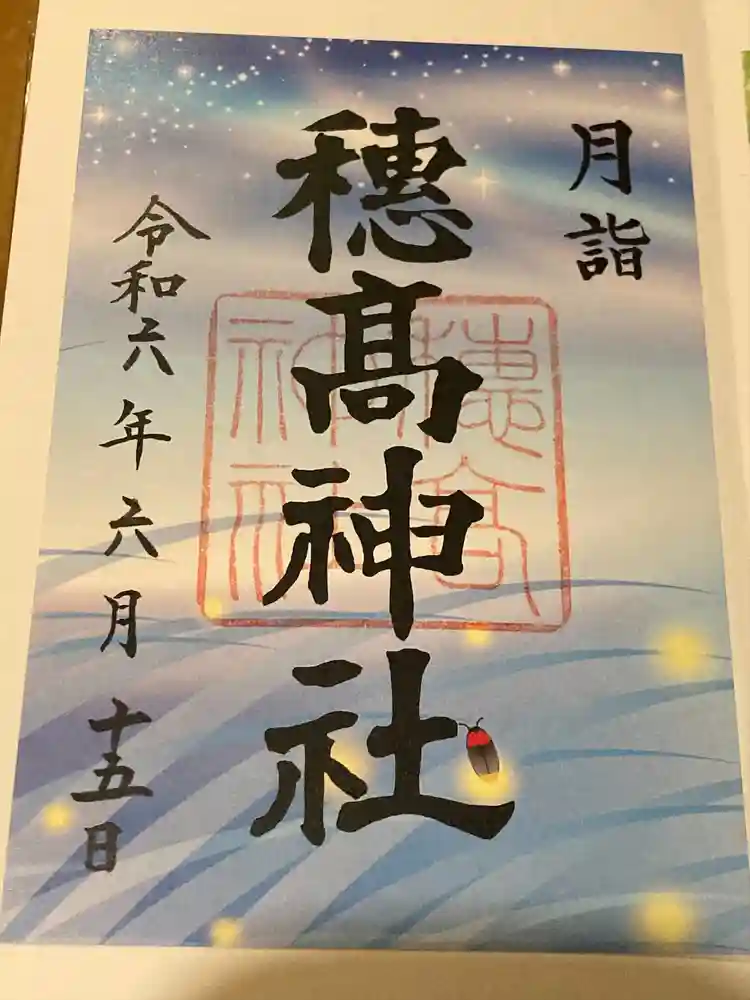 月詣
穂髙神社
令和六年六月十五日
穂高
神社